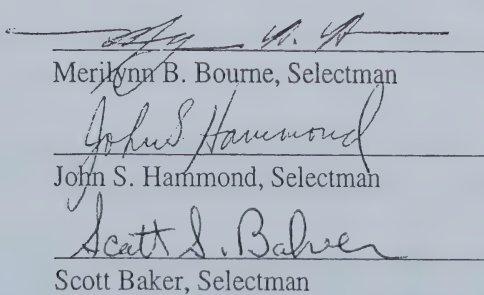 Merilynn B. Bourne, Selectman
John S. Hammond
John S. Hammond, Selectman
Scott S. Baker
Scott Baker, Selectman